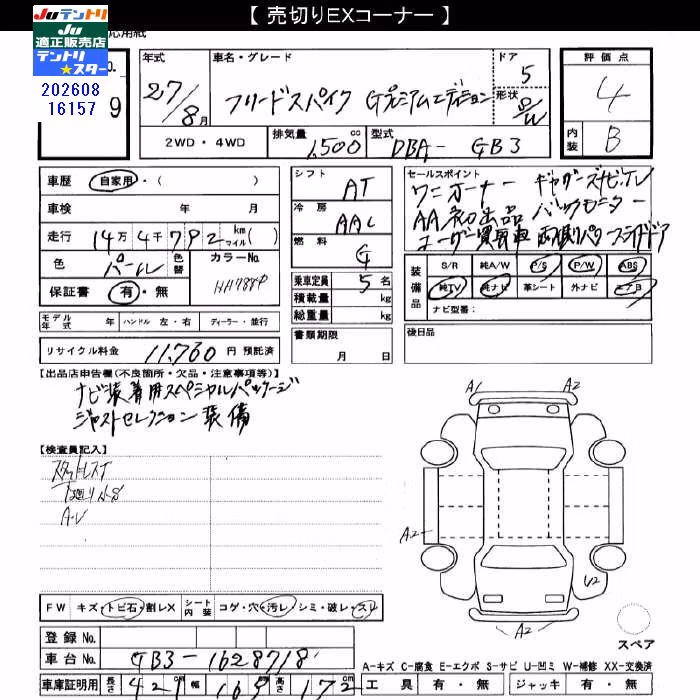 【 売切りEXコーナー 】
JUテントリ
JU
適正販売店
テントリ
★スター
応用紙
No.
202608
16157
9
年式 27/8月
車名・グレード フリードスパイク Gプレミアムエディション
ドア 5
形状 D/W
2WD・4WD
排気量 1,500 cc
型式 DBA- GB3
評価点 4
内装 B
車歴 自家用・( )
車検 年 月
走行 14万4千792 km マイル( )
色 パール 色替 カラーNo.
保証書 有・無
シフト AT
冷房 AAC
燃料 G
乗車定員 5名
積載量 kg
総重量 kg
セールスポイント
ワンオーナー ギャザーズナビTV
AA初出品 バックモニター
ユーザー買取車 両側パワースライドドア
装備品 S/R 純A/W P/S P/W ABS
純TV 純ナビ 革シート 外ナビ エアB
ナビ型番:
モデル年式 年 ハンドル 左・右 ディーラー・並行
書類期限 月 日
後日品
リサイクル料金 11,760 円 預託済
【出品店申告欄(不良箇所・欠品・注意事項等)】
ナビ装着用スペシャルパッケージ
ジャストセレクション装備
【検査員記入】
A1 A2
A2
U2
A2
FW キズ・トビ石・割レX シート内装 コゲ・穴・汚レ・シミ・破レ・スレ
スペア
登録No.
車台No. GB3-1628718
A-キズ C-腐食 E-エクボ S-サビ U-凹ミ W-補修 XX-交換済
車庫証明用 長さ 421 幅 169 高さ 172 cm
工具 有・無 ジャッキ 有・無